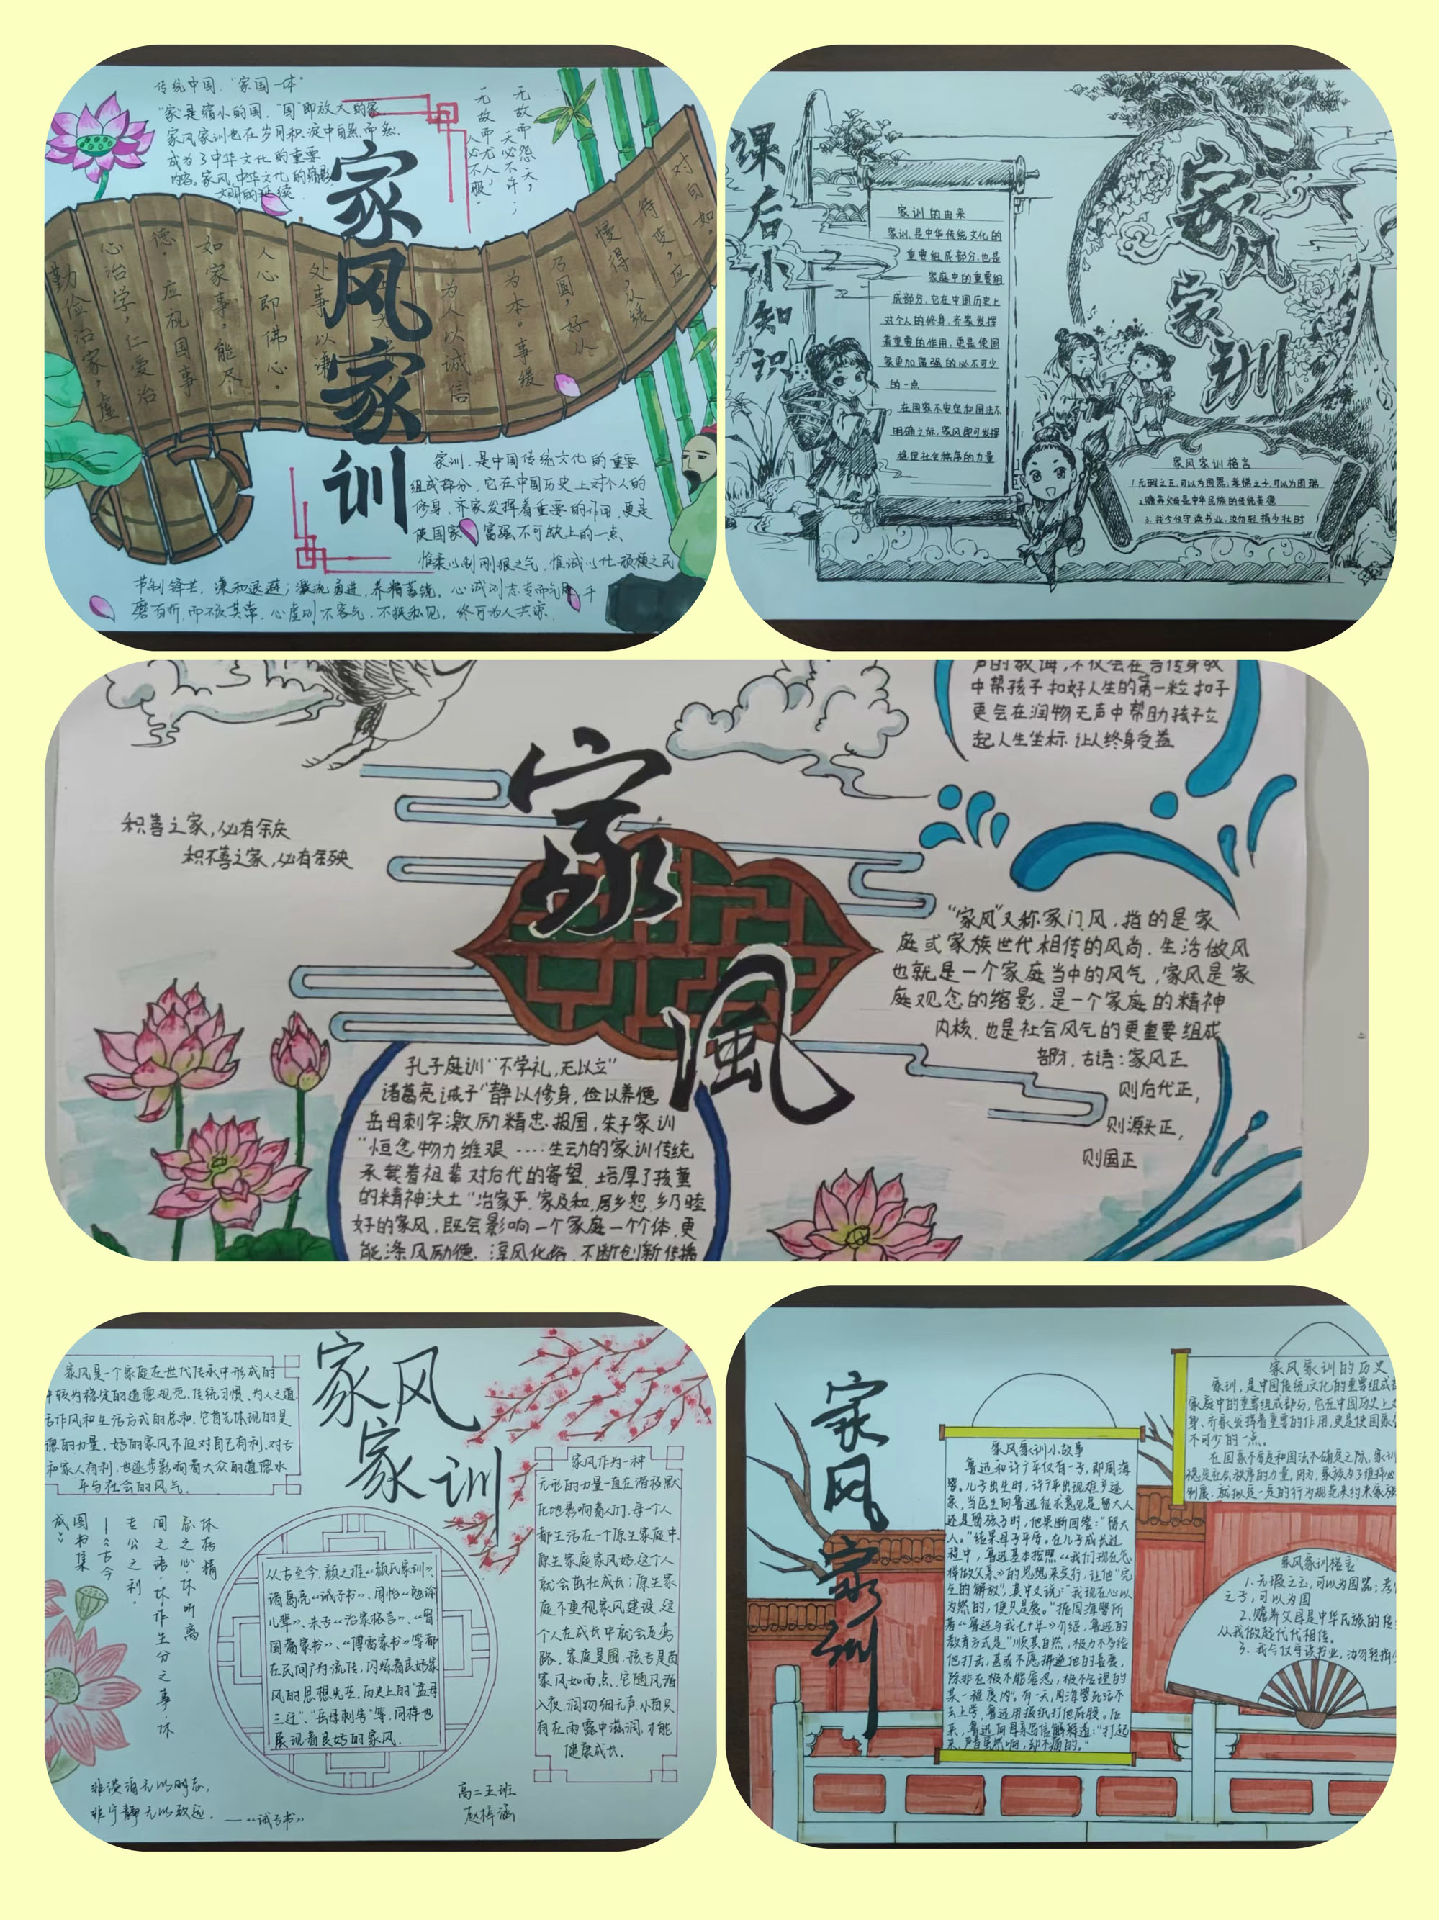 传统中国,"家国一体"
"家"是缩小的国,"国"即放大的家
家风家训也在岁月积淀中自然而然
成为了中华文化的重要
内容。家风中华文化的
文明的延续
无故而天必怨不天许;
无故而人必无人不服
家风家训
对自如。
待变,应
慢得众缓
乃圆,好从
为本。事缓
为人以诚信
处事以谦
人心即佛心。
如家事,能尽
德。应视国事
心治学,仁爱治
勤俭治家,虚
家训,是中国传统文化的重要
组成部分,它在中国历史上对个人的
修身、齐家发挥着重要的作用,更是
使国家 富强不可缺上的一点、
惟柔以制刚狠之气,惟诚以化顽梗之民
节制锋芒,谦和退避;激流勇进,养精蓄锐。心诚则志专而气 千
磨百折,而不改其幸,心虚则不客气,不挟私见,终可为人共家
课后小知识
家训的由来
家训,是中华传统文化的
重要组成部分,也是
家庭中的重要组
成部分,它在中国历史上
对个人的修身、齐家发挥
着重要的作用,更是使国
家更加富强的必不可少
的一点
在国家不安定和国法不
明确之际,家风即可发挥
稳定社会秩序的力量
家风
家训
家风家训格言
1.无瑕之玉,可以为国器;孝悌之子,可以为国瑞
2.赡养父母是中华民族的传统美德
3.我今仅守读书业,汝勿轻捐少壮时
声的教诲,不仅会在言传身教
中帮孩子扣好人生的第一粒扣子
更会在润物无声中帮助孩子立
起人生坐标,让人终身受益
家風
积善之家,必有余庆
积不善之家,必有余殃
"家风"又称家门风,指的是家
庭或家族世代相传的风尚、生活做风
也就是一个家庭当中的风气,家风是家
庭观念的缩影,是一个家庭的精神
内核,也是社会风气的更重要组成
部分,古语:家风正
则后代正,
则源头正,
则国正
孔子庭训"不学礼,无以立"
诸葛亮诫子"静以修身,俭以养德
岳母刺字激励精忠报国,朱子家训
"恒念物力维艰……生动的家训传统
承载着祖辈对后代的寄望,培厚了孩童
的精神沃土"治家严,家及和,居乡恕,乡乃睦
好的家风,既会影响一个家庭一个个体,更
能涤风励德,淳风化俗,不断创新传播
家风
家训
家风是一个家庭在世代传承中形成的
较为稳定的道德规范、传统习惯、为人之道
作风和生活方式的总和,它首先体现的是
德的力量,好的家风不但对自己有利,对子
和家人有利,也逐步影响着大众的道德水
平与社会的风气
休损精
忽之心,休听离
间之语,休作生分之事,休
专公之利。
——《古今
图书集
成》
从古至今,颜之推《颜氏家训》、
诸葛亮《诫子书》、周怡《勉谕
儿辈》、朱子《治家格言》、《曾
国藩家书》、《傅雷家书》等都
在民间广为流传,闪烁着良好家
风的思想光芒,历史上的"孟母
三迁"、"岳母刺字"等,同样也
展现着良好的家风。
家风作为一种
无形的力量一直在潜移默
化地影响着人们,每一个人
都生活在一个原生家庭中,
原生家庭家风好,这个人
就会茁壮成长;原生家
庭不重视家风建设,这
个人在成长中就会走弯
路。家庭是圃,孩子是苗
家风如雨点,它随风潜
入夜,润物细无声,小苗只
有在雨露中滋润,才能
健康成长。
非淡泊无以明志,
非宁静无以致远。
——《诫子书》
高二五班
赵梓涵
家风家训
家风家训小故事
鲁迅和许广平仅有一子,即周海
婴。儿子出生时,许广平出现难产迹
象,当医生问鲁迅征求意见是留大人
还是留孩子时,他果断回答:"留大
人。"结果母子平安。在儿子成长过
程中,鲁迅基本按照《我们现在怎
样做父亲》的思想来实行,让他"完
全的解放",其中又说:"我现在心以
为然的,便只是爱。"据周海婴所
著《鲁迅与我七十年》介绍,鲁迅的
教育方式是"顺其自然,极力不多给
他打击,甚或不愿拂逆他的喜爱,
除非在极不能容忍,极不合理的
某一程度内。"有一天,周海婴死活不
去上学,鲁迅用报纸打他屁股。后
来,鲁迅向母亲写信解释道:"打起
来,声音虽然响,却不痛的。"
家风家训的历史
家训,是中国传统文化的重要组成部
家庭中的重要组成部分,它在中国历史上对
身、齐家发挥着重要的作用,更是使国家
不可少的一点。
在国家不安定和国法不确定之际,家训
稳定社会秩序的力量,因为,家族为了维持必
制度,就拟定一定的行为规范来约束家族
家风家训格言
1.无瑕之玉,可以为国器;孝
之子,可以为国
2.赡养父母是中华民族的传
从我做起代代相传。
3.我今仅守读书业,汝勿轻捐少